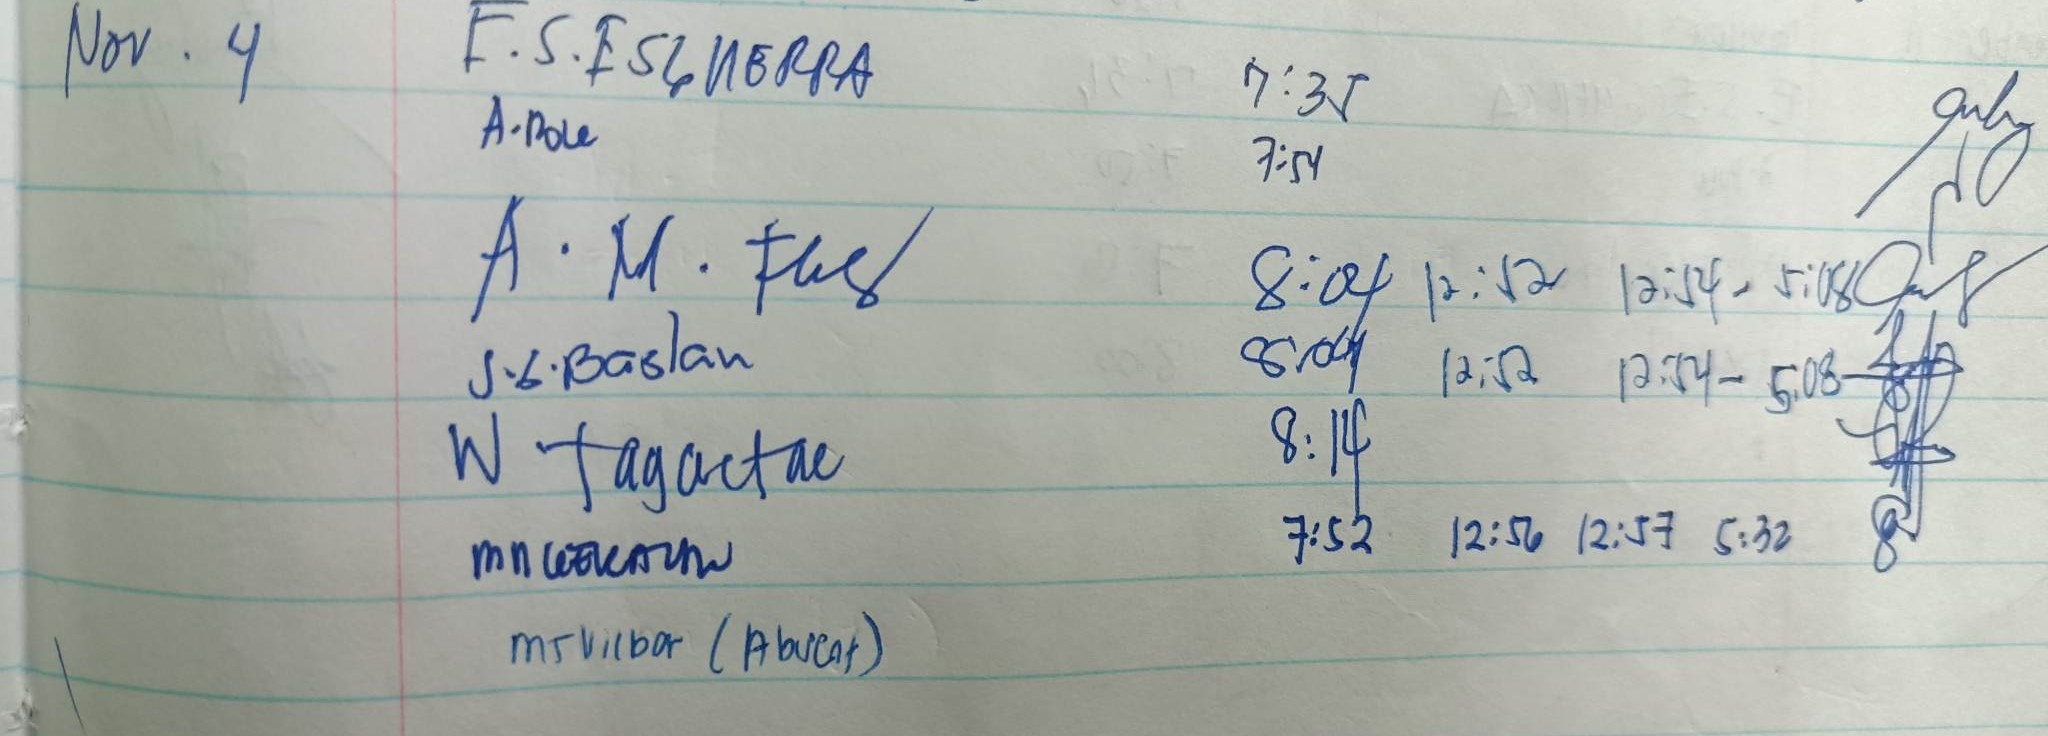 Nov. 4 F.S. ESGUERRA 7:35
A. Pole 7:54
A. M. 8:04 12:52 12:54 - 5:08
S.G. Baslan 8:04 12:52 12:54 - 5:08
W Tagactac 8:14
7:52 12:56 12:57 5:32
MJ Vilbar (Absent)